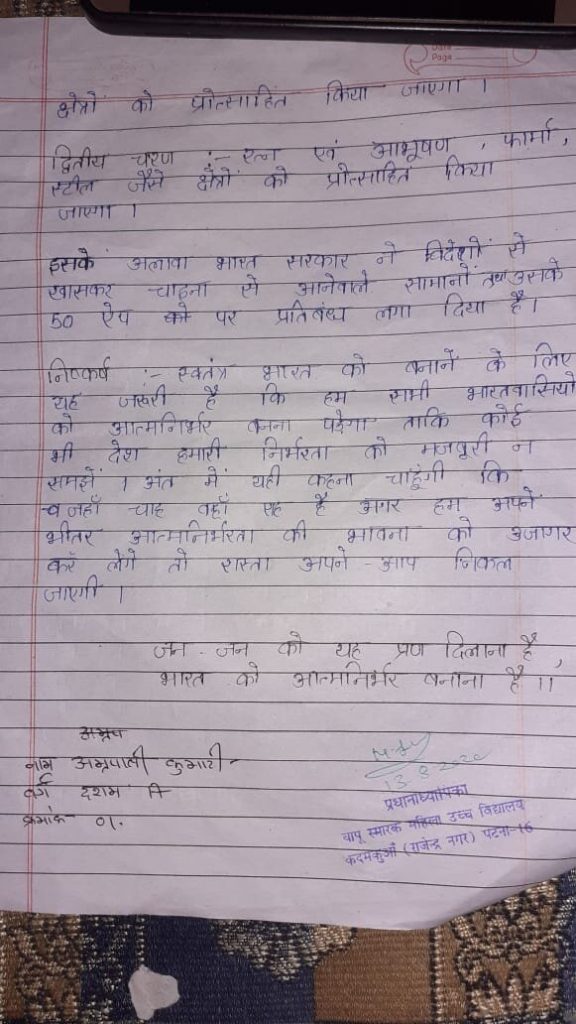 Date
Page
क्षेत्रों को प्रोत्साहित किया जाएगा ।
द्वितीय चरण :- रत्न एवं आभूषण , फार्मा ,
स्टील जैसे क्षेत्रों को प्रोत्साहित किया
जाएगा ।
इसके अलावा भारत सरकार ने विदेशों से
खासकर चाइना से आनेवाले सामानों तथा उसके
50 ऐप पर प्रतिबंध लगा दिया है।
निष्कर्ष :- स्वतंत्र भारत को बनाने के लिए
यह जरूरी है कि हम सभी भारतवासियों
को आत्मनिर्भर बनना पड़ेगा ताकि कोई
भी देश हमारी निर्भरता को मजबूरी न
समझें । अंत में यही कहना चाहूंगी कि
जहाँ चाह वहाँ राह है अगर हम अपने
भीतर आत्मनिर्भरता की भावना को उजागर
कर लेंगे तो रास्ता अपने - आप निकल
जाएगी ।
जन - जन को यह प्रण दिलाना है ,
भारत को आत्मनिर्भर बनाना है ।।
नाम अम्रपाली कुमारी -
वर्ग दशम A
क्रमांक - 01.
13 8 2020
प्रधानाध्यापिका
बापू स्मारक महिला उच्च विद्यालय
कदमकुआँ (राजेन्द्र नगर) पटना-16